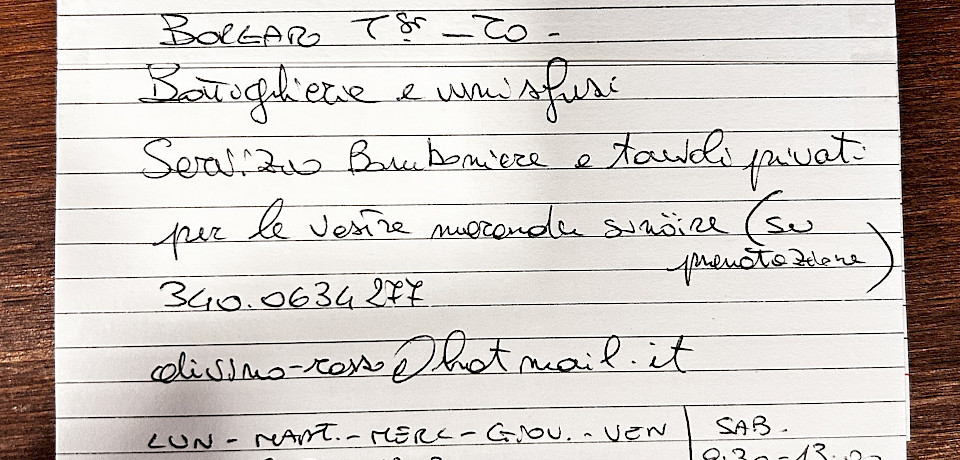 BORGARO T.se - TO -
Bottiglierie e vini sfusi
Servizio Bomboniere e tavoli privati
per le vostre merende sinoire (su
prenotazione)
340.0634277
dissimo-rosso@hotmail.it
LUN - MART. - MERC - GIOV. - VEN | SAB.